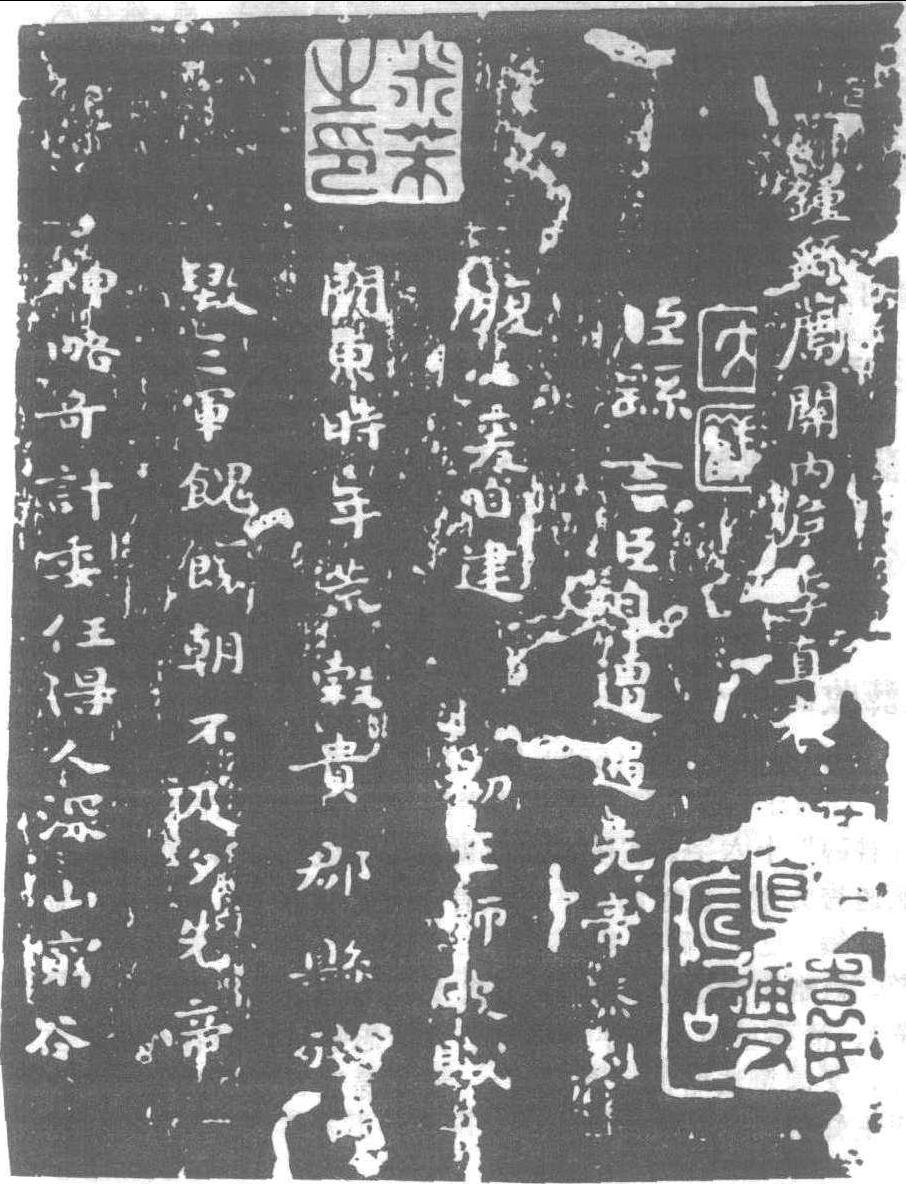 鍾繇薦關內侯季直表
臣繇言臣自遭遇先帝忝列
腹心爰自建初王師破賊
關東時年荒穀貴郡縣殘
毀三軍餽饟朝不及夕先帝
神略奇計委任得人深山窮谷
米芾之印